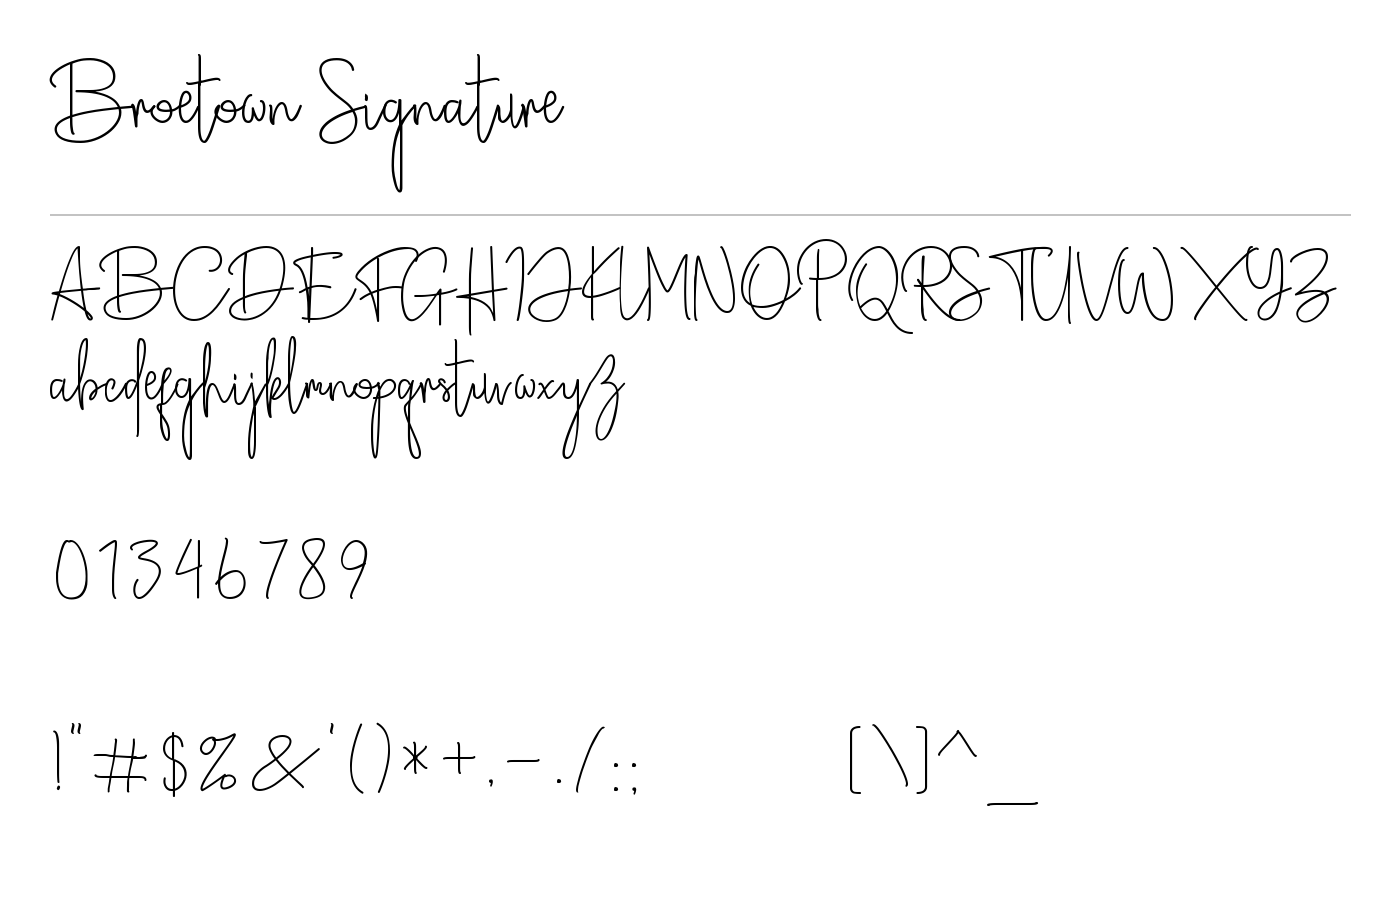 Broetown Signature
ABCDEFGHIJKLMNOPQRSTUVWXYZ
abcdefghijklmnopqrstuvwxyz
01346789
!"#$%&'()*+,-./:; [\]^_